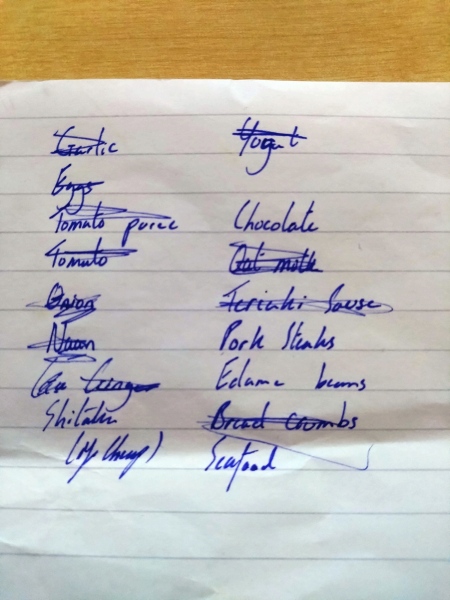 Garlic
Eggs
Tomato puree
Tomato
Onion
Naan
Shitake
(if cheap)
Yogurt
Chocolate
Oat milk
Teriaki Sause
Pork Steaks
Edame beans
Bread crumbs
Seafood